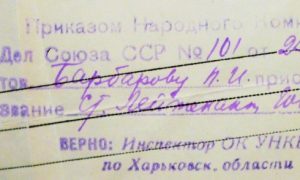 Приказом Народного Ком
Дел Союза ССР № 101 от 2
тов. Барбарову П. И. прис
звание Ст. Лейтенант
ВЕРНО: Инспектор ОК УНК
по Харьковск. области